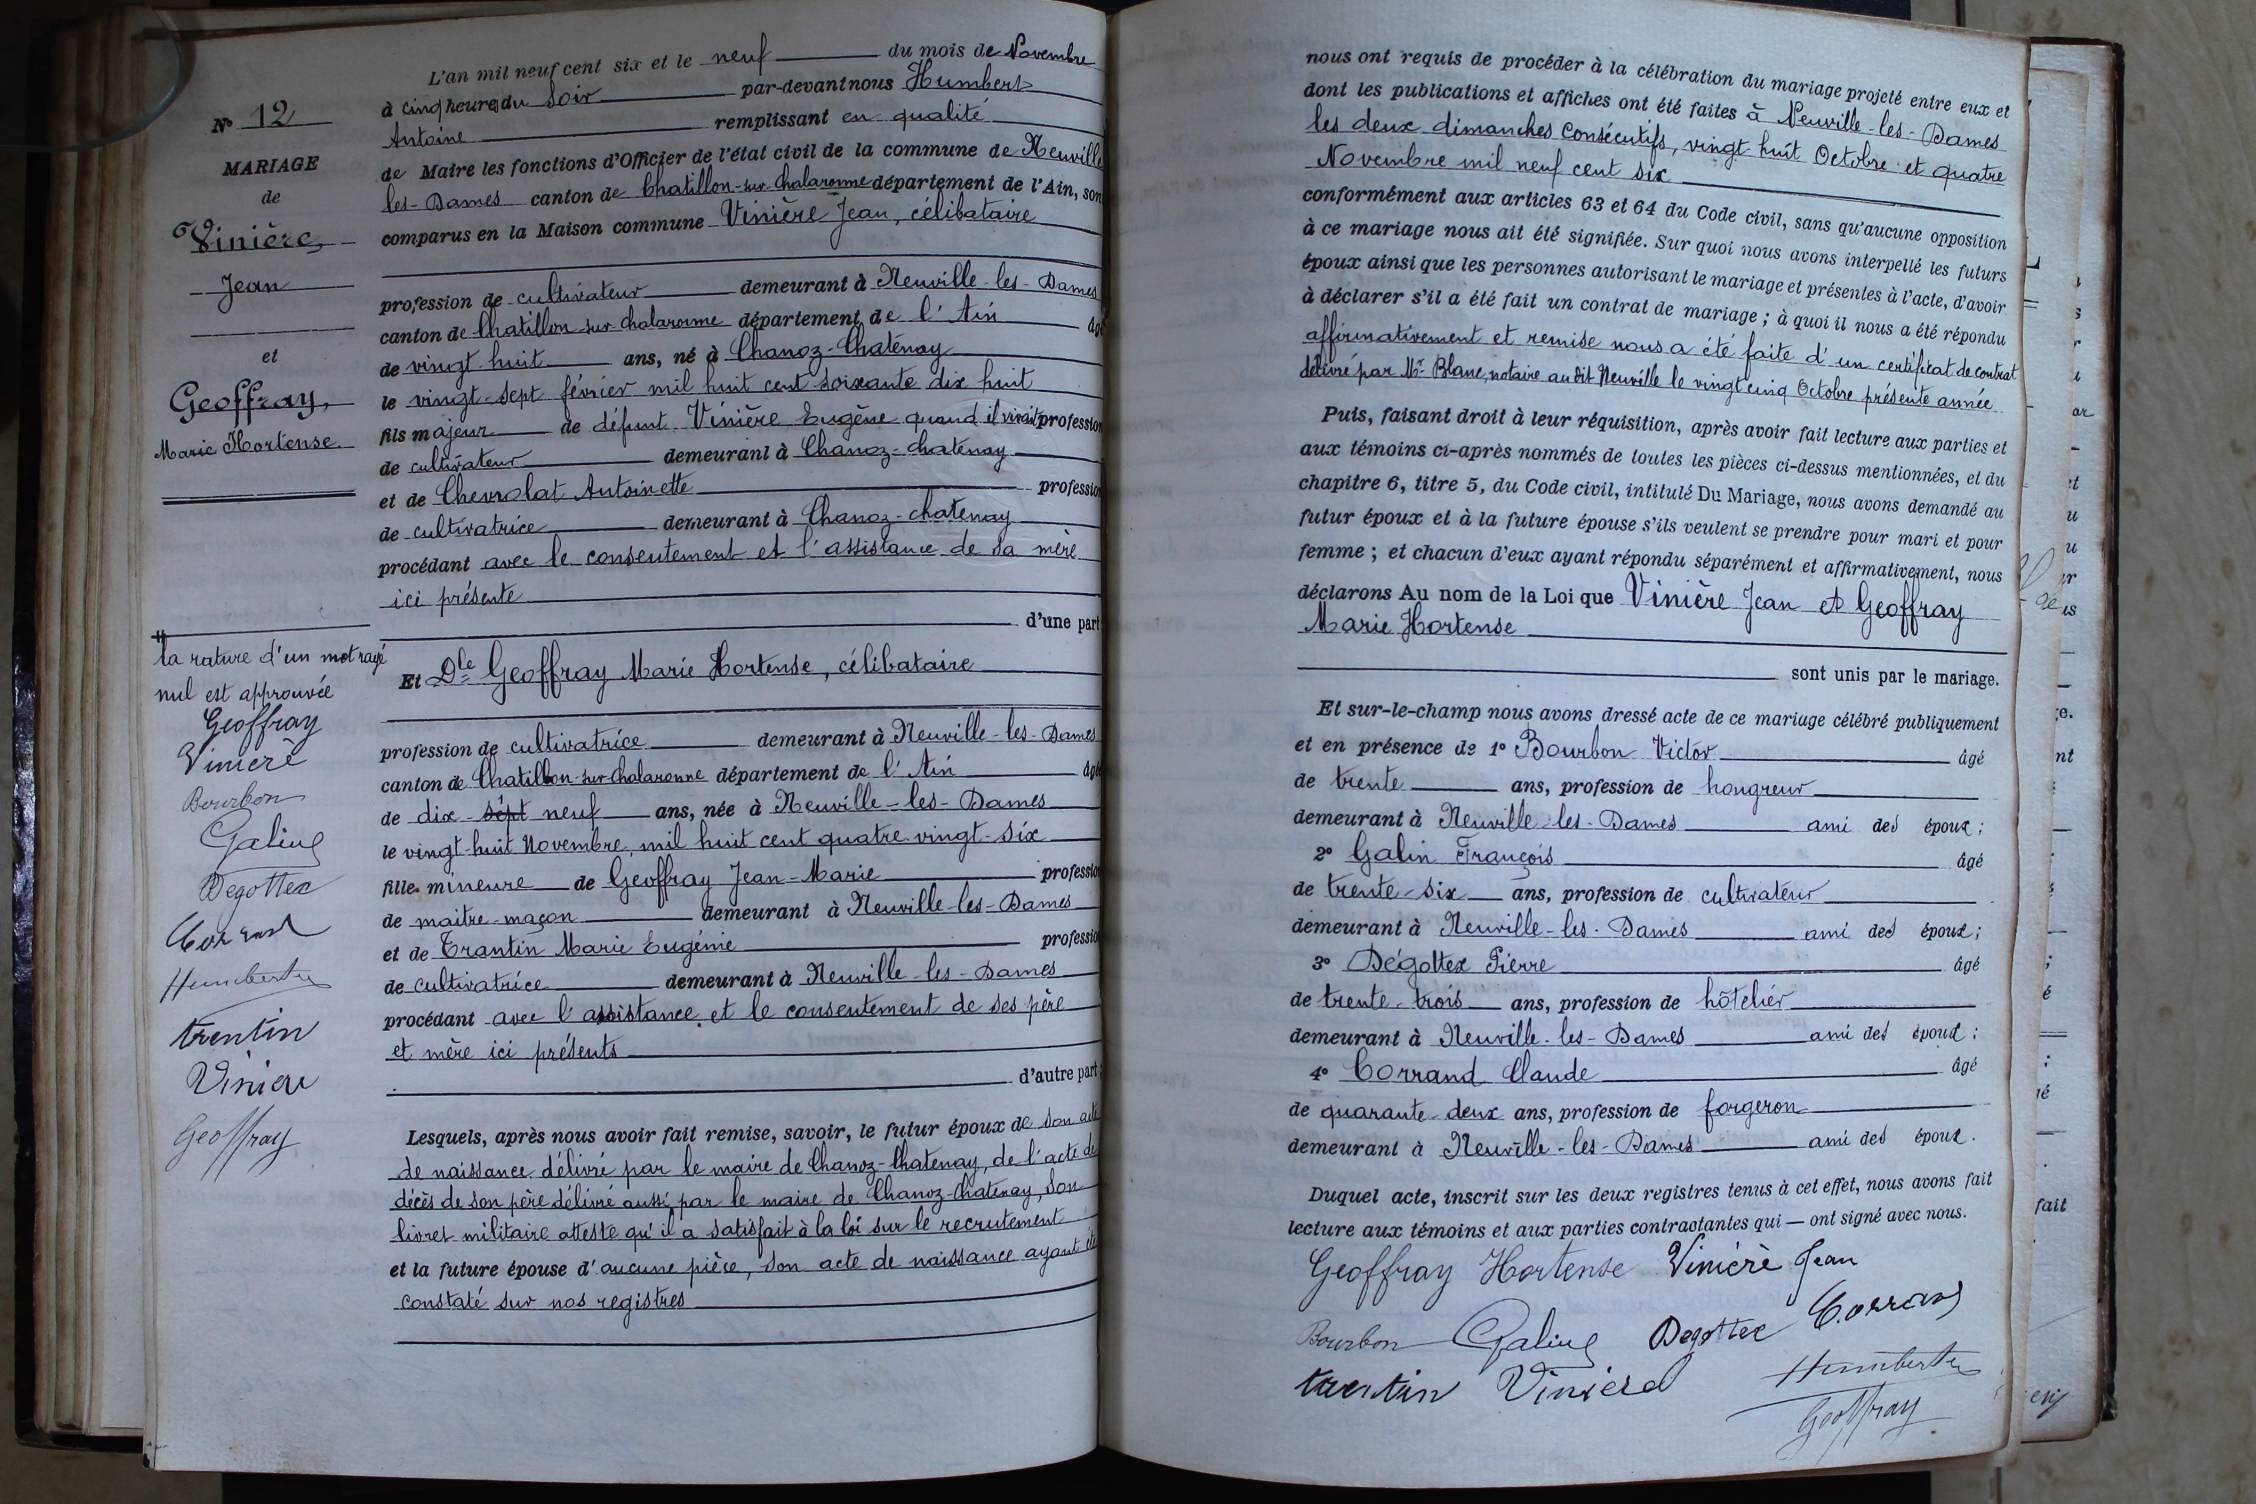 N° 12
MARIAGE
de
Vinière,
Jean
et
Geoffray,
Marie Hortense
la rature d'un mot rayé
nul est approuvée
Geoffray
Vinière
Bourbon
Galin
Degottex
Corrand
Humbert
trentin
Viniere
Geoffray
L'an mil neuf cent six et le neuf du mois de Novembre
à cinq heures du soir par-devant nous Humbert
Antoine remplissant en qualité
de Maire les fonctions d'Officier de l'état civil de la commune de Neuville
les-Dames canton de Chatillon-sur-Chalaronne département de l'Ain, son
comparus en la Maison commune Vinière Jean, célibataire
profession de cultivateur demeurant à Neuville-les-Dames
canton de Chatillon-sur-Chalaronne département de l'Ain âgé
de vingt huit ans, né à Chanoz-Chatenay
le vingt-sept février mil huit cent soixante dix huit
fils majeur de défunt Vinière Eugène quand il vivait profession
de cultivateur demeurant à Chanoz-chatenay
et de Chevrolat Antoinette profession
de cultivatrice demeurant à Chanoz-chatenay
procédant avec le consentement et l'assistance de sa mère
ici présente
d'une part
Et Dlle Geoffray Marie Hortense, célibataire
profession de cultivatrice demeurant à Neuville-les-Dames
canton de Chatillon-sur-Chalaronne département de l'Ain âgé
de dix-sept neuf ans, née à Neuville-les-Dames
le vingt-huit Novembre mil huit cent quatre vingt-six
fille mineure de Geoffray Jean-Marie profession
de maitre-maçon demeurant à Neuville-les-Dames
et de Trantin Marie Eugénie profession
de cultivatrice demeurant à Neuville-les-Dames
procédant avec l'assistance et le consentement de ses père
et mère ici présents
d'autre part;
Lesquels, après nous avoir fait remise, savoir, le futur époux de son acte
de naissance délivré par le maire de Chanoz-Chatenay, de l'acte de
décès de son père délivré aussi par le maire de Chanoz-Chatenay, son
livret militaire atteste qu'il a satisfait à la loi sur le recrutement
et la future épouse d'aucune pièce, son acte de naissance ayant été
constaté sur nos registres
nous ont requis de procéder à la célébration du mariage projeté entre eux et
dont les publications et affiches ont été faites à Neuville-les-Dames
les deux dimanches consécutifs, vingt huit Octobre et quatre
Novembre mil neuf cent six
conformément aux articles 63 et 64 du Code civil, sans qu'aucune opposition
à ce mariage nous ait été signifiée. Sur quoi nous avons interpellé les futurs
époux ainsi que les personnes autorisant le mariage et présentes à l'acte, d'avoir
à déclarer s'il a été fait un contrat de mariage ; à quoi il nous a été répondu
affirmativement et remise nous a été faite d'un certificat de contrat
délivré par Mr Blanc, notaire au dit Neuville le vingt cinq Octobre présente année
Puis, faisant droit à leur réquisition, après avoir fait lecture aux parties et
aux témoins ci-après nommés de toutes les pièces ci-dessus mentionnées, et du
chapitre 6, titre 5, du Code civil, intitulé Du Mariage, nous avons demandé au
futur époux et à la future épouse s'ils veulent se prendre pour mari et pour
femme ; et chacun d'eux ayant répondu séparément et affirmativement, nous
déclarons Au nom de la Loi que Vinière Jean et Geoffray
Marie Hortense
sont unis par le mariage.
Et sur-le-champ nous avons dressé acte de ce mariage célébré publiquement
et en présence de 1° Bourbon Victor âgé
de trente ans, profession de hongreur
demeurant à Neuville-les-Dames ami des époux ;
2° Galin François âgé
de trente-six ans, profession de cultivateur
demeurant à Neuville-les-Dames ami des époux ;
3° Dégottex Pierre âgé
de trente-trois ans, profession de hôtelier
demeurant à Neuville-les-Dames ami des époux ;
4° Corrand Claude âgé
de quarante-deux ans, profession de forgeron
demeurant à Neuville-les-Dames ami des époux.
Duquel acte, inscrit sur les deux registres tenus à cet effet, nous avons fait
lecture aux témoins et aux parties contractantes qui — ont signé avec nous.
Geoffray Hortense Vinière Jean
Bourbon Galin Degottex Corrand
trentin Viniere Humbert
Geoffray